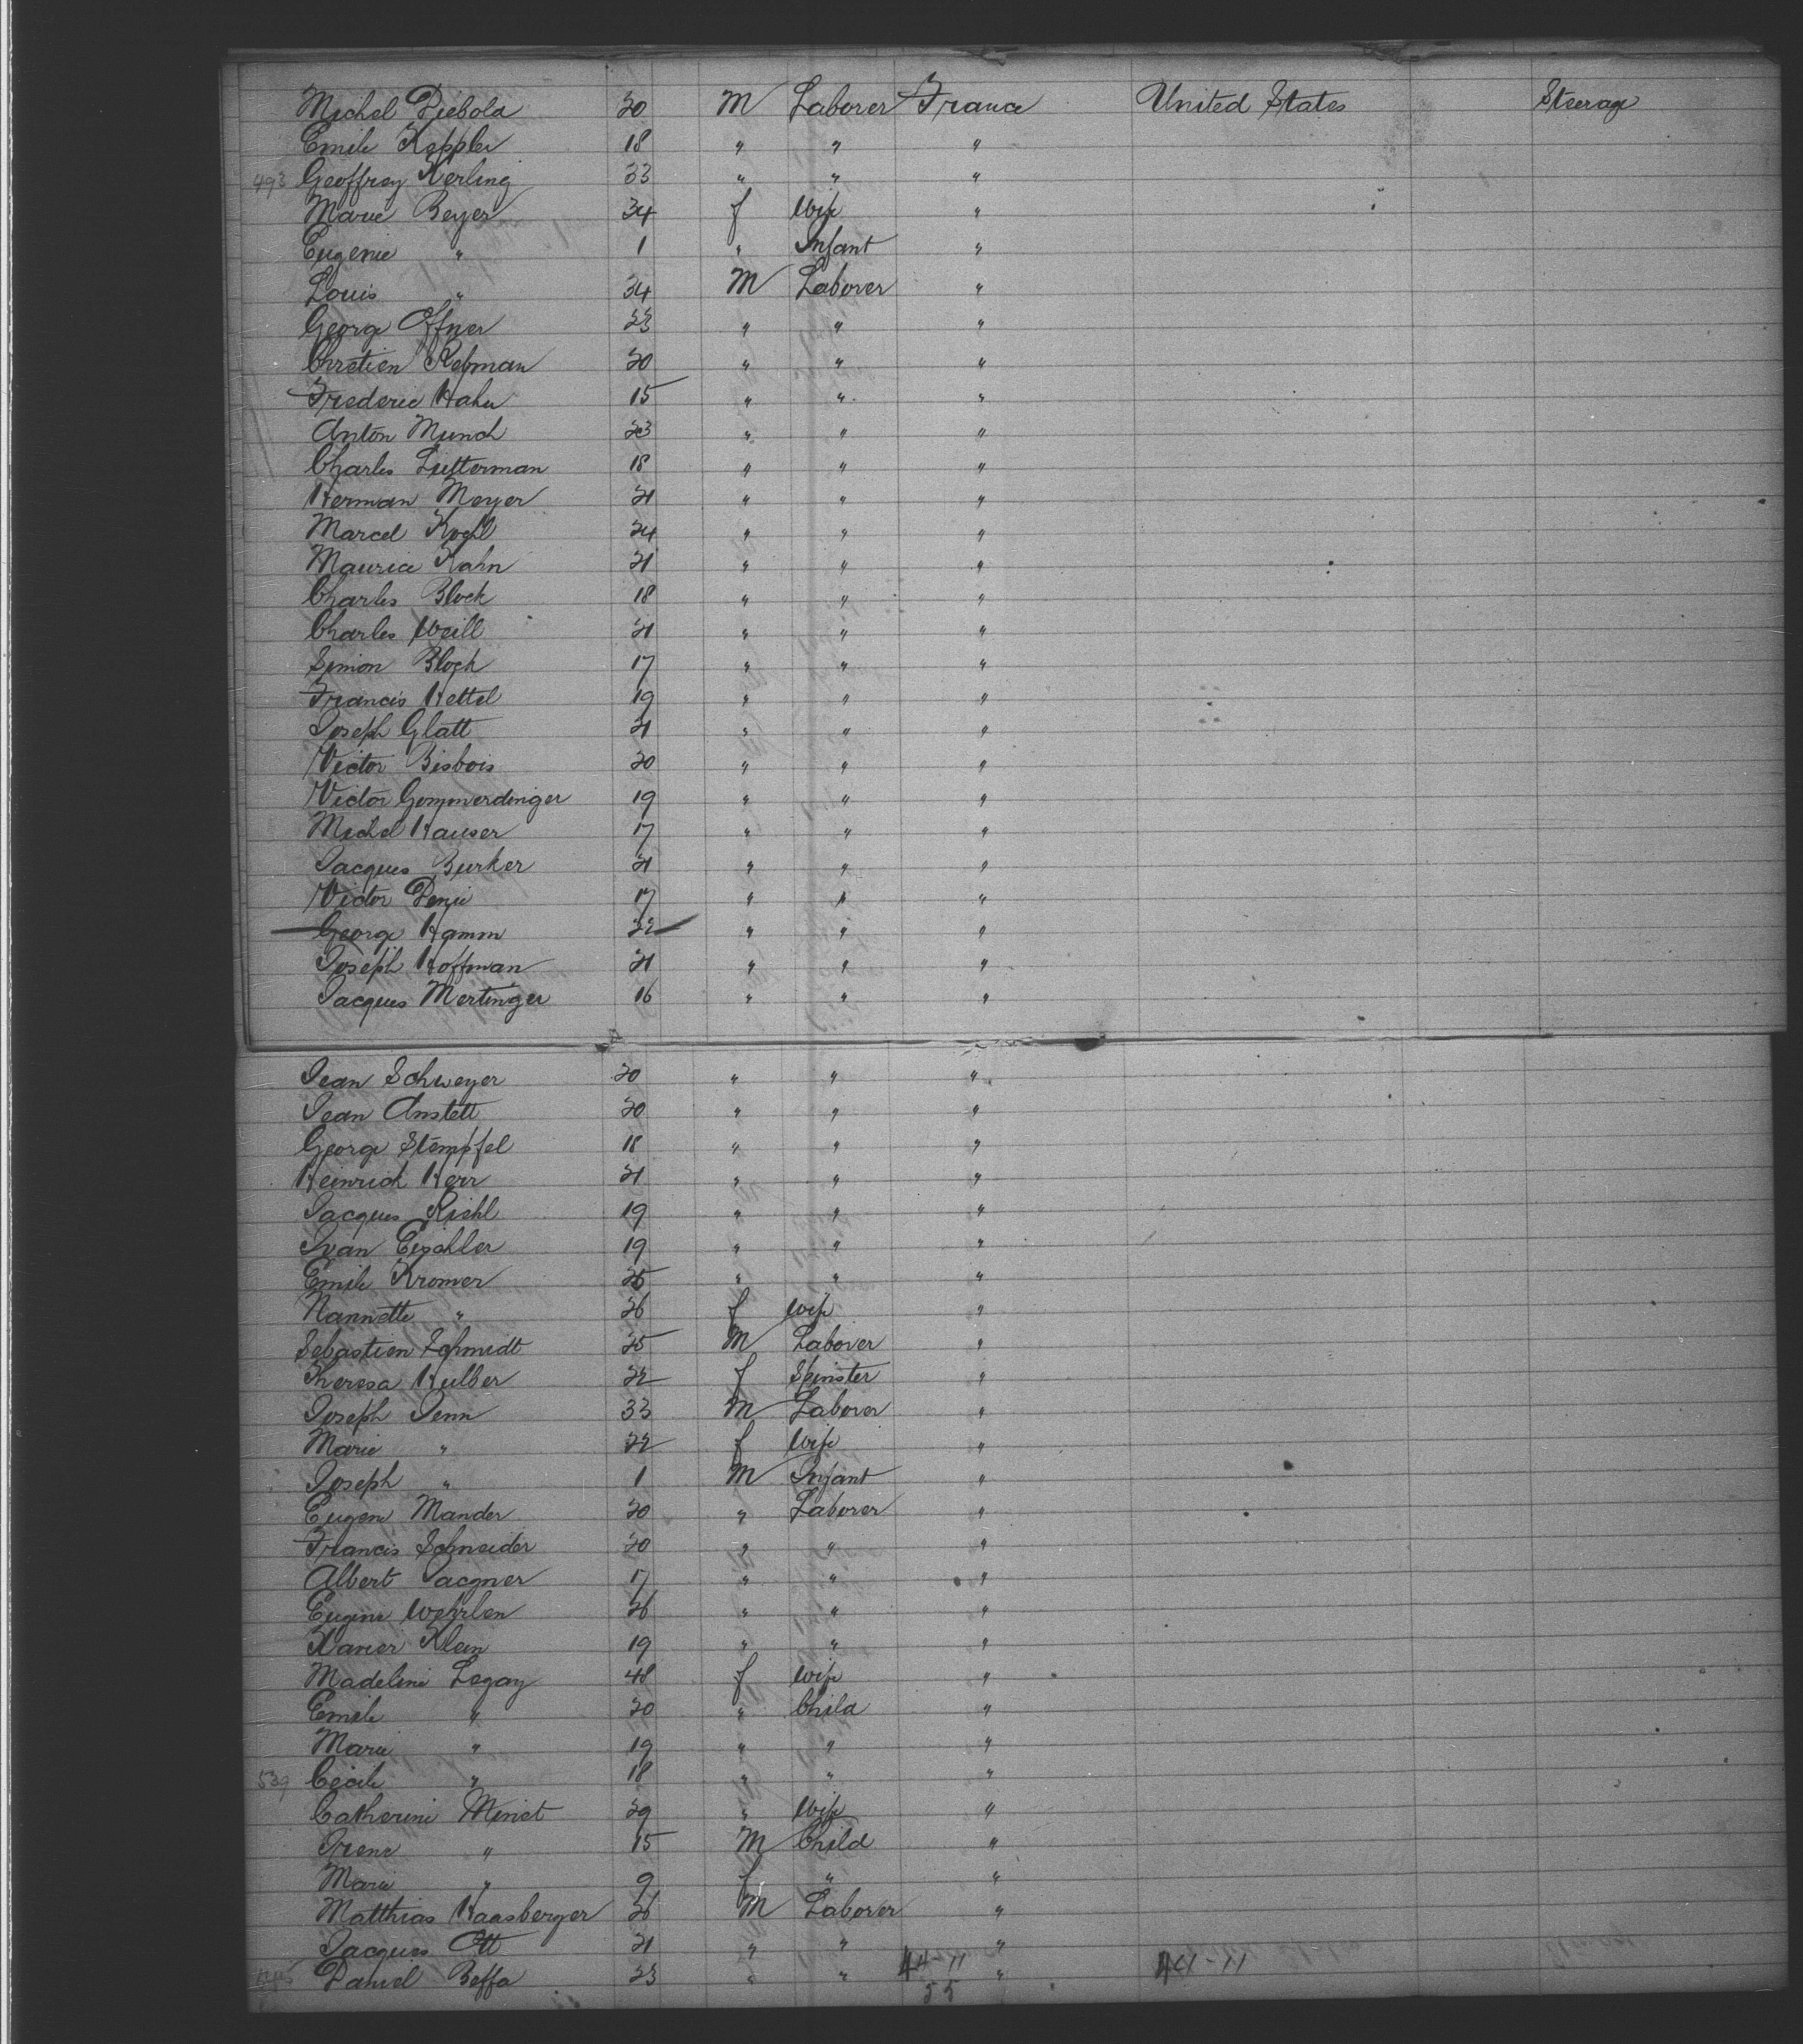 Michel Diebold 20 M Laborer France United States Steerage
Emile Keppler 18 " " "
493 Geoffrey Kerling 33 " " "
Marie Beyer 34 f Wife "
Eugenie " 1 " Infant "
Louis " 34 M Laborer "
George Offner 23 " " "
Chretien Rebman 20 " " "
Frederic Hahn 15 " " "
Anton Munch 23 " " "
Charles Lutterman 18 " " "
Herman Meyer 21 " " "
Marcel Koehl 24 " " "
Maurice Kahn 21 " " "
Charles Bloch 18 " " "
Charles Weill 21 " " "
Simon Bloch 17 " " "
Francis Hettel 19 " " "
Joseph Glatt 21 " " "
Victor Bisbois 20 " " "
Victor Gommerdinger 19 " " "
Michel Hauser 17 " " "
Jacques Burker 21 " " "
Victor 17 " " "
George Hamm 22 " " "
Joseph Hoffman 21 " " "
Jacques Mertinger 16 " " "
Jean Schweyer 20 " " "
Jean Anstett 20 " " "
George Stempfel 18 " " "
Heinrich Herr 21 " " "
Jacques Riehl 19 " " "
Ivan Eischler 19 " " "
Emile Kromer 25 " " "
Nannette " 26 f Wife "
Sebastien Schmidt 25 M Laborer "
Theresa Hulber 22 f Spinster "
Joseph Jenn 33 M Laborer "
Marie " 22 f Wife "
Joseph " 1 M Infant "
Eugene Mander 20 " Laborer "
Francis Schneider 20 " " "
Albert Jacgner 17 " " "
Eugene Wehrlen 26 " " "
Xavier Klein 19 " " "
Madeline Legay 48 f Wife "
Emile " 20 " Child "
Marie " 19 " " "
539 Cecile " 18 " " "
Catherine Miniet 29 " Wife "
Irene " 15 M Child "
Marie " 9 f " "
Matthias Haasberger 26 M Laborer "
Jacques Ott 21 " " "
Daniel Beffa 23 " " 44-11 " 44-11
55